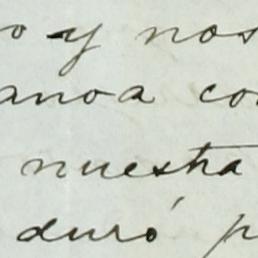 o y nos
anoa co
nuestra
duró p